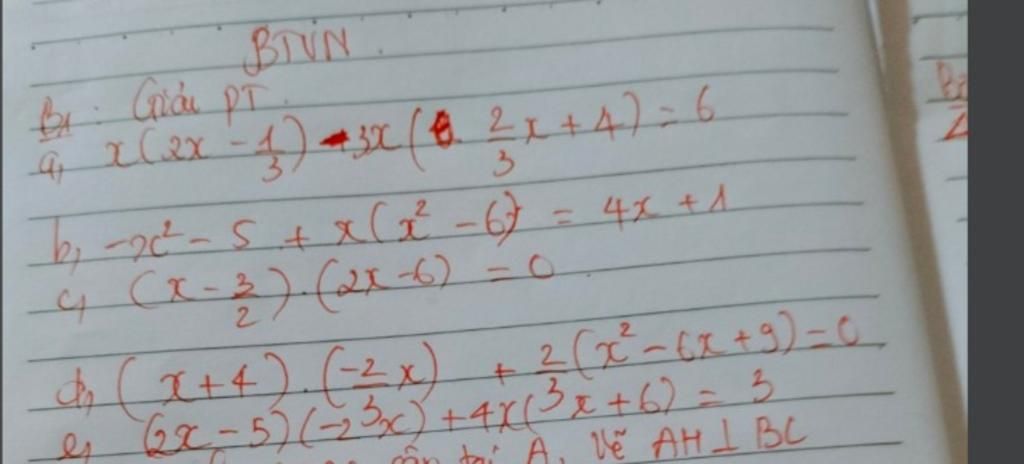 BTVN.
B1: Giải PT.
a, x(2x - 1/3) - 3x( 2/3 x + 4) = 6
b, -x² - 5 + x(x² - 6) = 4x + 1
c, (x - 3/2).(2x - 6) = 0
d, (x + 4).(-2/3 x) + 2/3 (x² - 6x + 9) = 0
e, (2x - 5)(-2x) + 4x(3x + 6) = 3
cân tại A, Vẽ AH ⊥ BC